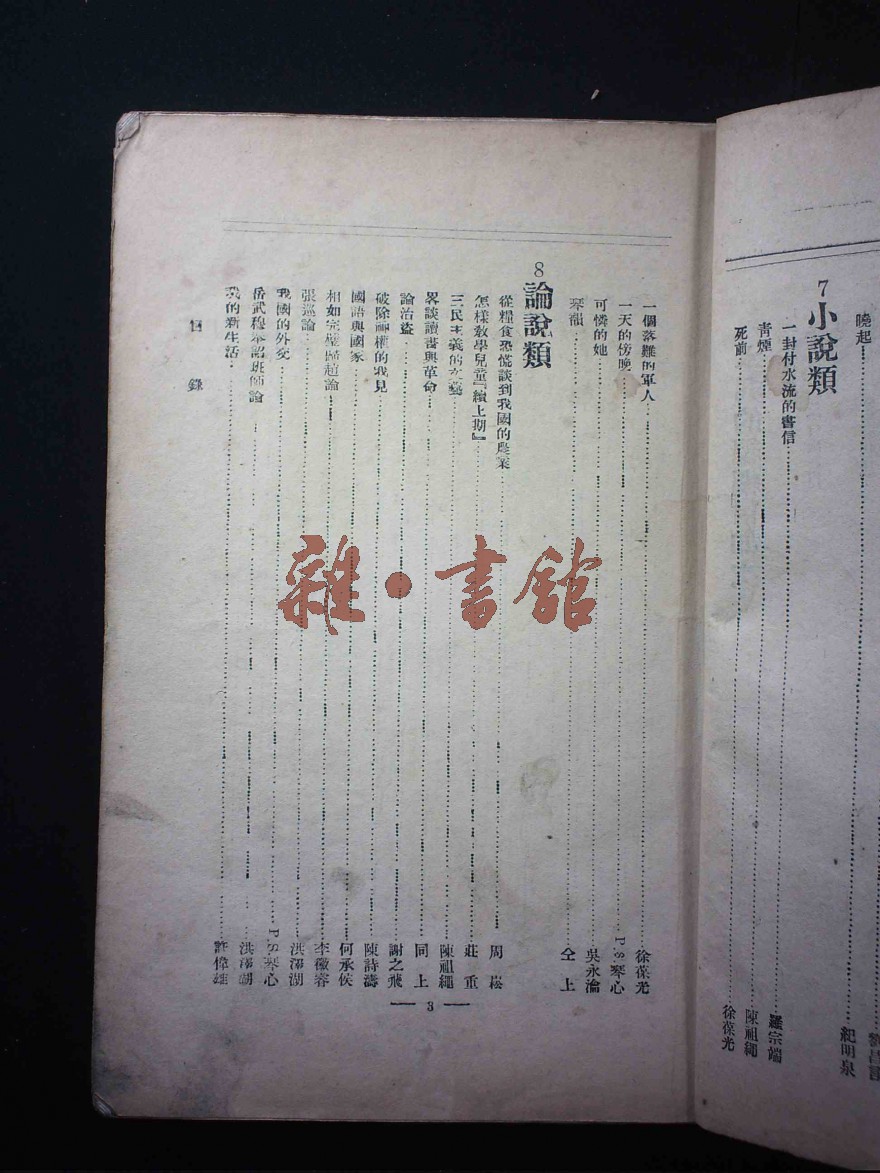 曉起 紀明泉
7 小說類
一封付水流的書信 羅宗端
靑煙 陳祖繩
死前 徐葆光
一個落難的軍人 徐葆光
一天的傍晚 P.S.琴心
可憐的她 吳永淪
琴韻 仝上
8 論說類
從糧食恐慌談到我國的農業 周崧
怎樣敎學兒童『續上期』 莊重
三民主義的文藝 陳祖繩
畧談讀書與革命 同上
論治盜 謝之飛
破除神權的我見 陳詩濤
國語與國家 何承侯
相如完璧歸趙論 李薇蓉
張巡論 洪澤湖
我國的外交 P.S.琴心
岳武穆奉詔班師論 洪澤湖
我的新生活 許偉雄
目錄
3
雜·書館